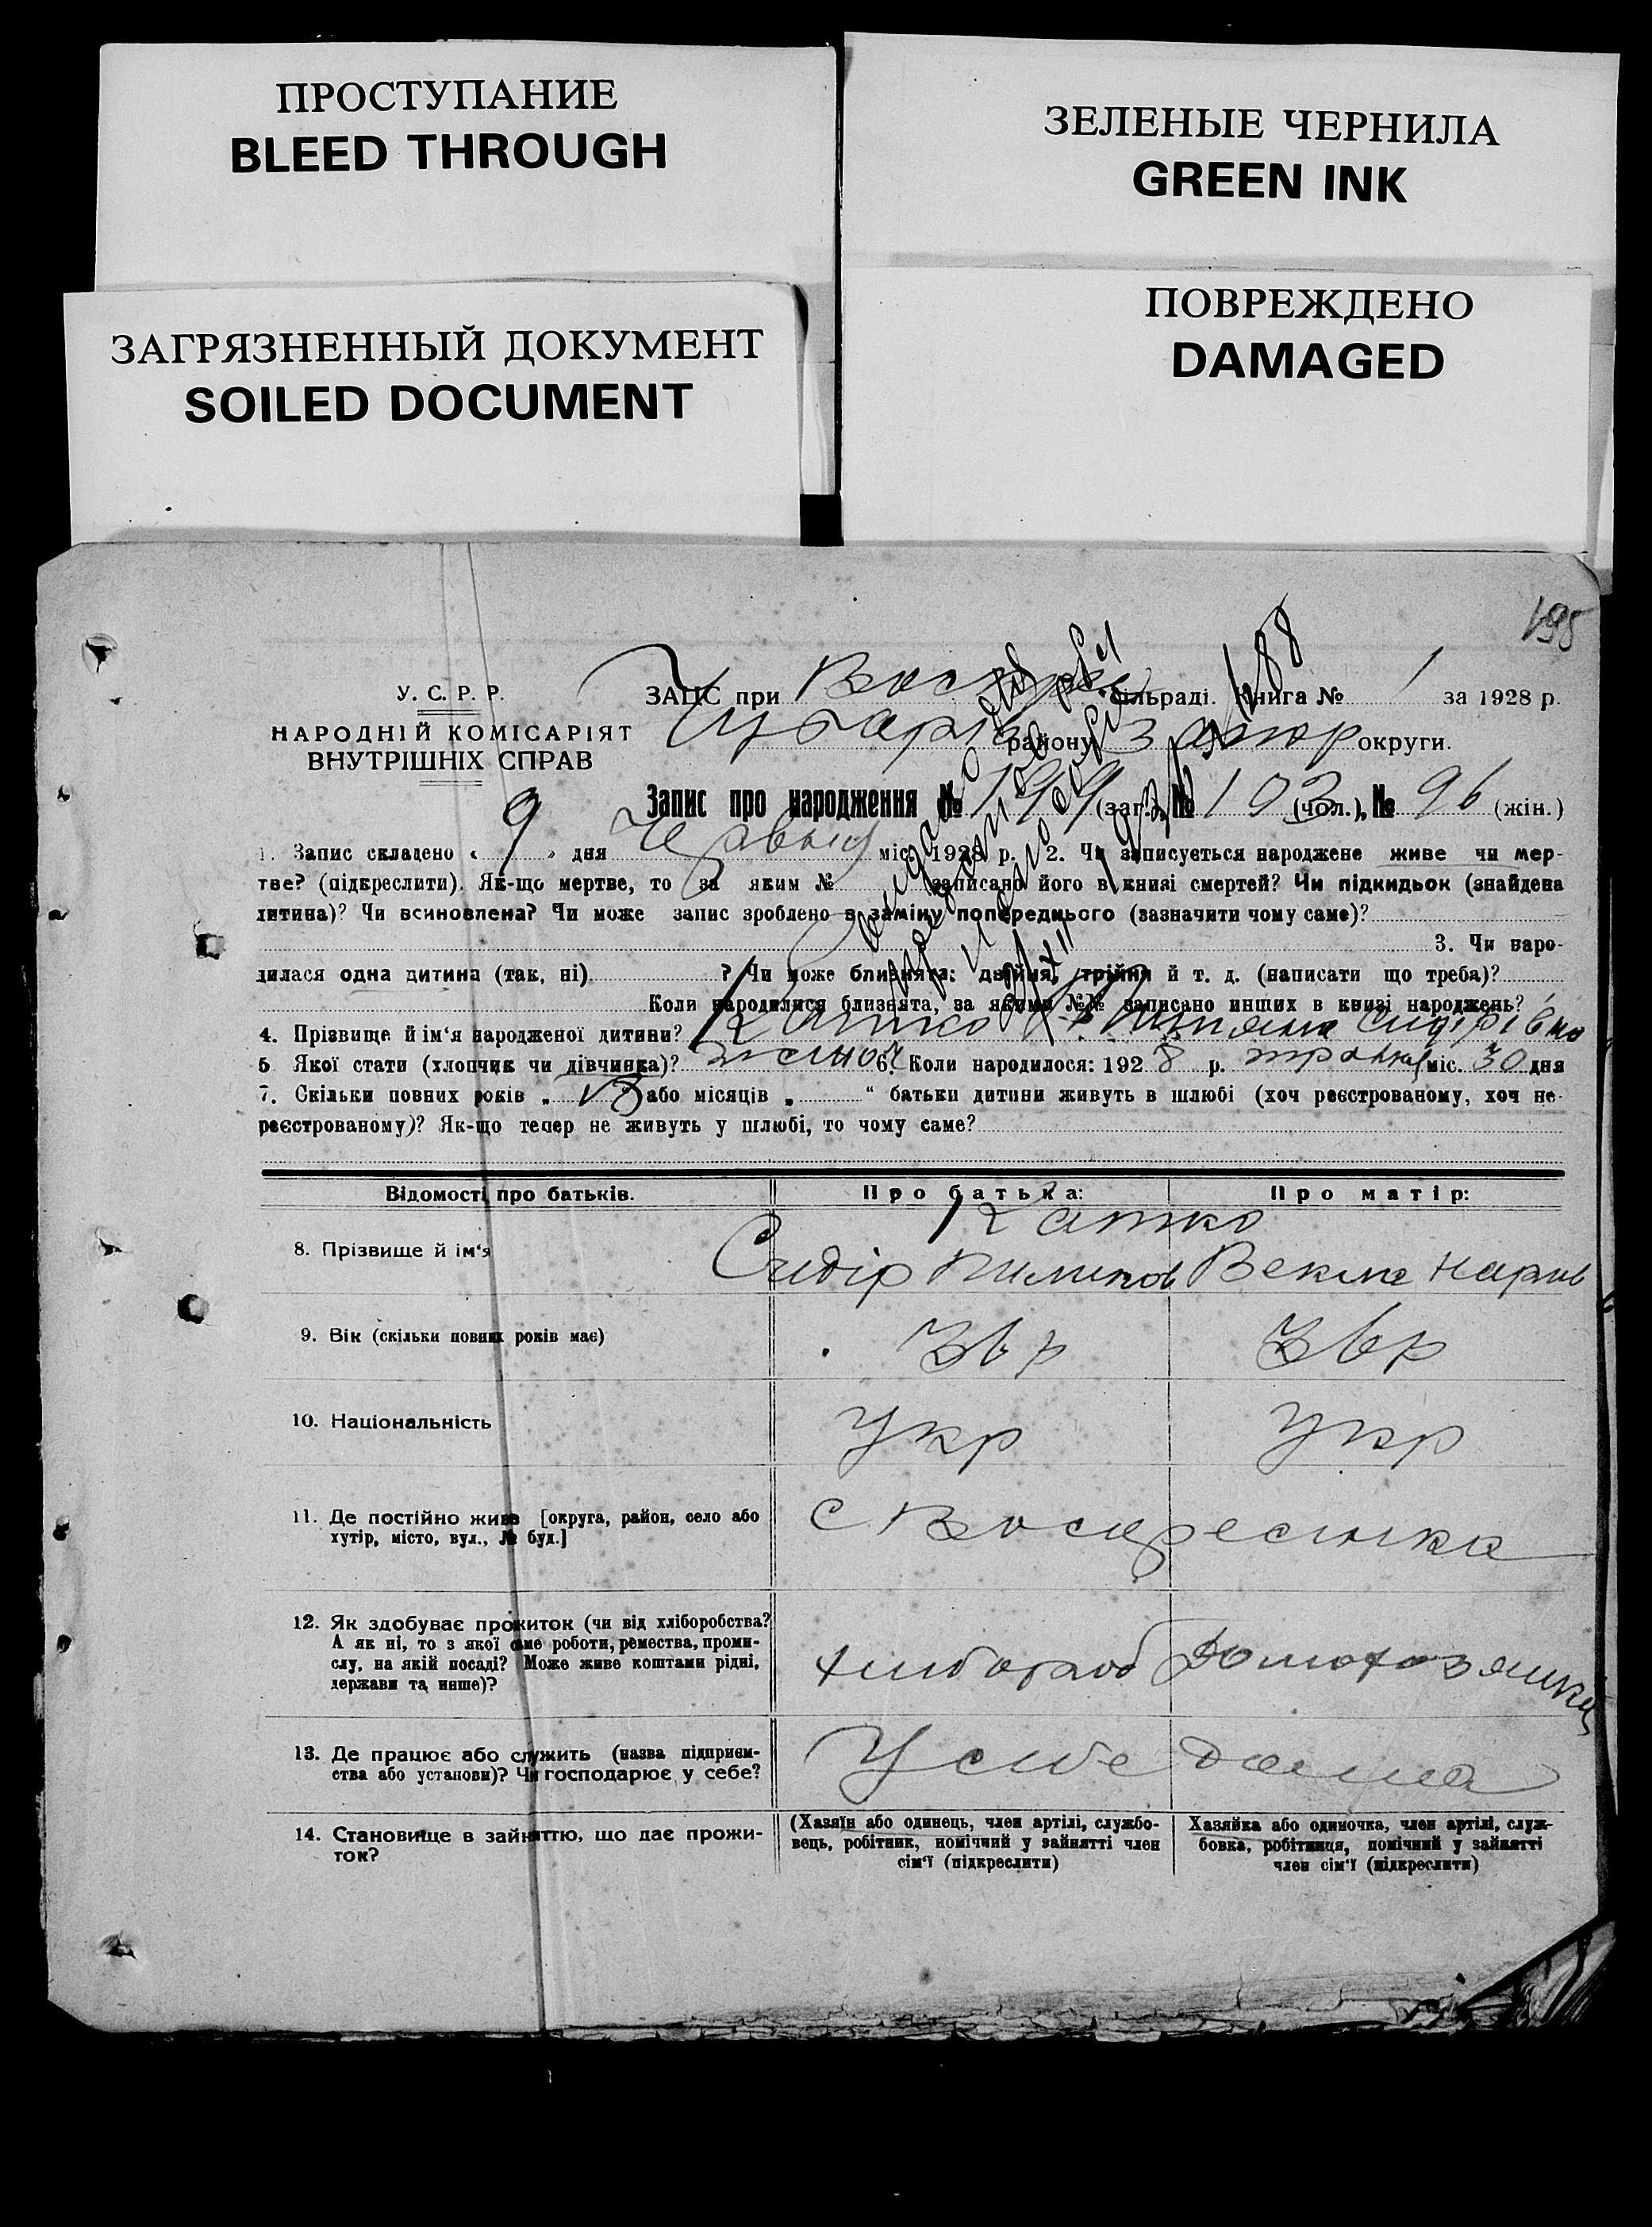 ПРОСТУПАНИЕ
BLEED THROUGH
ЗЕЛЕНЫЕ ЧЕРНИЛА
GREEN INK
ЗАГРЯЗНЕННЫЙ ДОКУМЕНТ
SOILED DOCUMENT
ПОВРЕЖДЕНО
DAMAGED
195
У. С. Р. Р.
НАРОДНІЙ КОМІСАРІЯТ
ВНУТРІШНІХ СПРАВ
ЗАПС при сільраді. Книга № 1 за 1928 р.
району Запор округи.
Запис про народження № 199 (заг.), № 103 (чол.), № 96 (жін.)
1. Запис складено « 9 » дня Червня міс. 1928 р. 2. Чи записується народжене живе чи мер-
тве? (підкреслити). Як-що мертве, то за яким № записано його в книзі смертей? Чи підкидьок (знайдена
дитина)? Чи всиновлена? Чи може запис зроблено в заміну попереднього (зазначити чому саме)?
3. Чи наро-
дилася одна дитина (так, ні) ? Чи може близнята: двійня, трійня й т. д. (написати що треба)?
Коли народилися близнята, за якими №№ записано инших в книзі народжень?
4. Прізвище й ім‘я народженої дитини? Катко Сидірівна
5 Якої стати (хлопчик чи дівчинка)? жиноч 6. Коли народилося: 1928 р. травня міс. 30 дня
7. Скільки повних років „ 13 “ або місяців „ “ батьки дитини живуть в шлюбі (хоч реєстрованому, хоч не-
реєстрованому)? Як-що тепер не живуть у шлюбі, то чому саме?
Відомості про батьків. Про батька: Про матір:
8. Прізвище й ім‘я Катко
Сидір Пилипов Векла
9. Вік (скільки повних років має) 36 р 36 р
10. Національність Укр Укр
11. Де постійно живе [округа, район, село або
хутір, місто, вул., № буд.]
С Воскресенка
12. Як здобуває прожиток (чи від хліборобства?
А як ні, то з якої саме роботи, ремества, проми-
слу, на якій посаді? Може живе коштами рідні,
держави та инше)?
хлибороб Домохозяйка
13. Де працює або служить (назва підприєм-
ства або установи)? Чи господарює у себе?
У себе дома
14. Становище в зайняттю, що дає прожи-
ток?
(Хазяїн або одинець, член артілі, службо-
вець, робітник, помічний у зайнятті член
сім‘ї (підкреслити)
Хазяйка або одиночка, член артілі, служ-
бовка, робітниця, помічний у зайнятті
член сім‘ї (підкреслити)